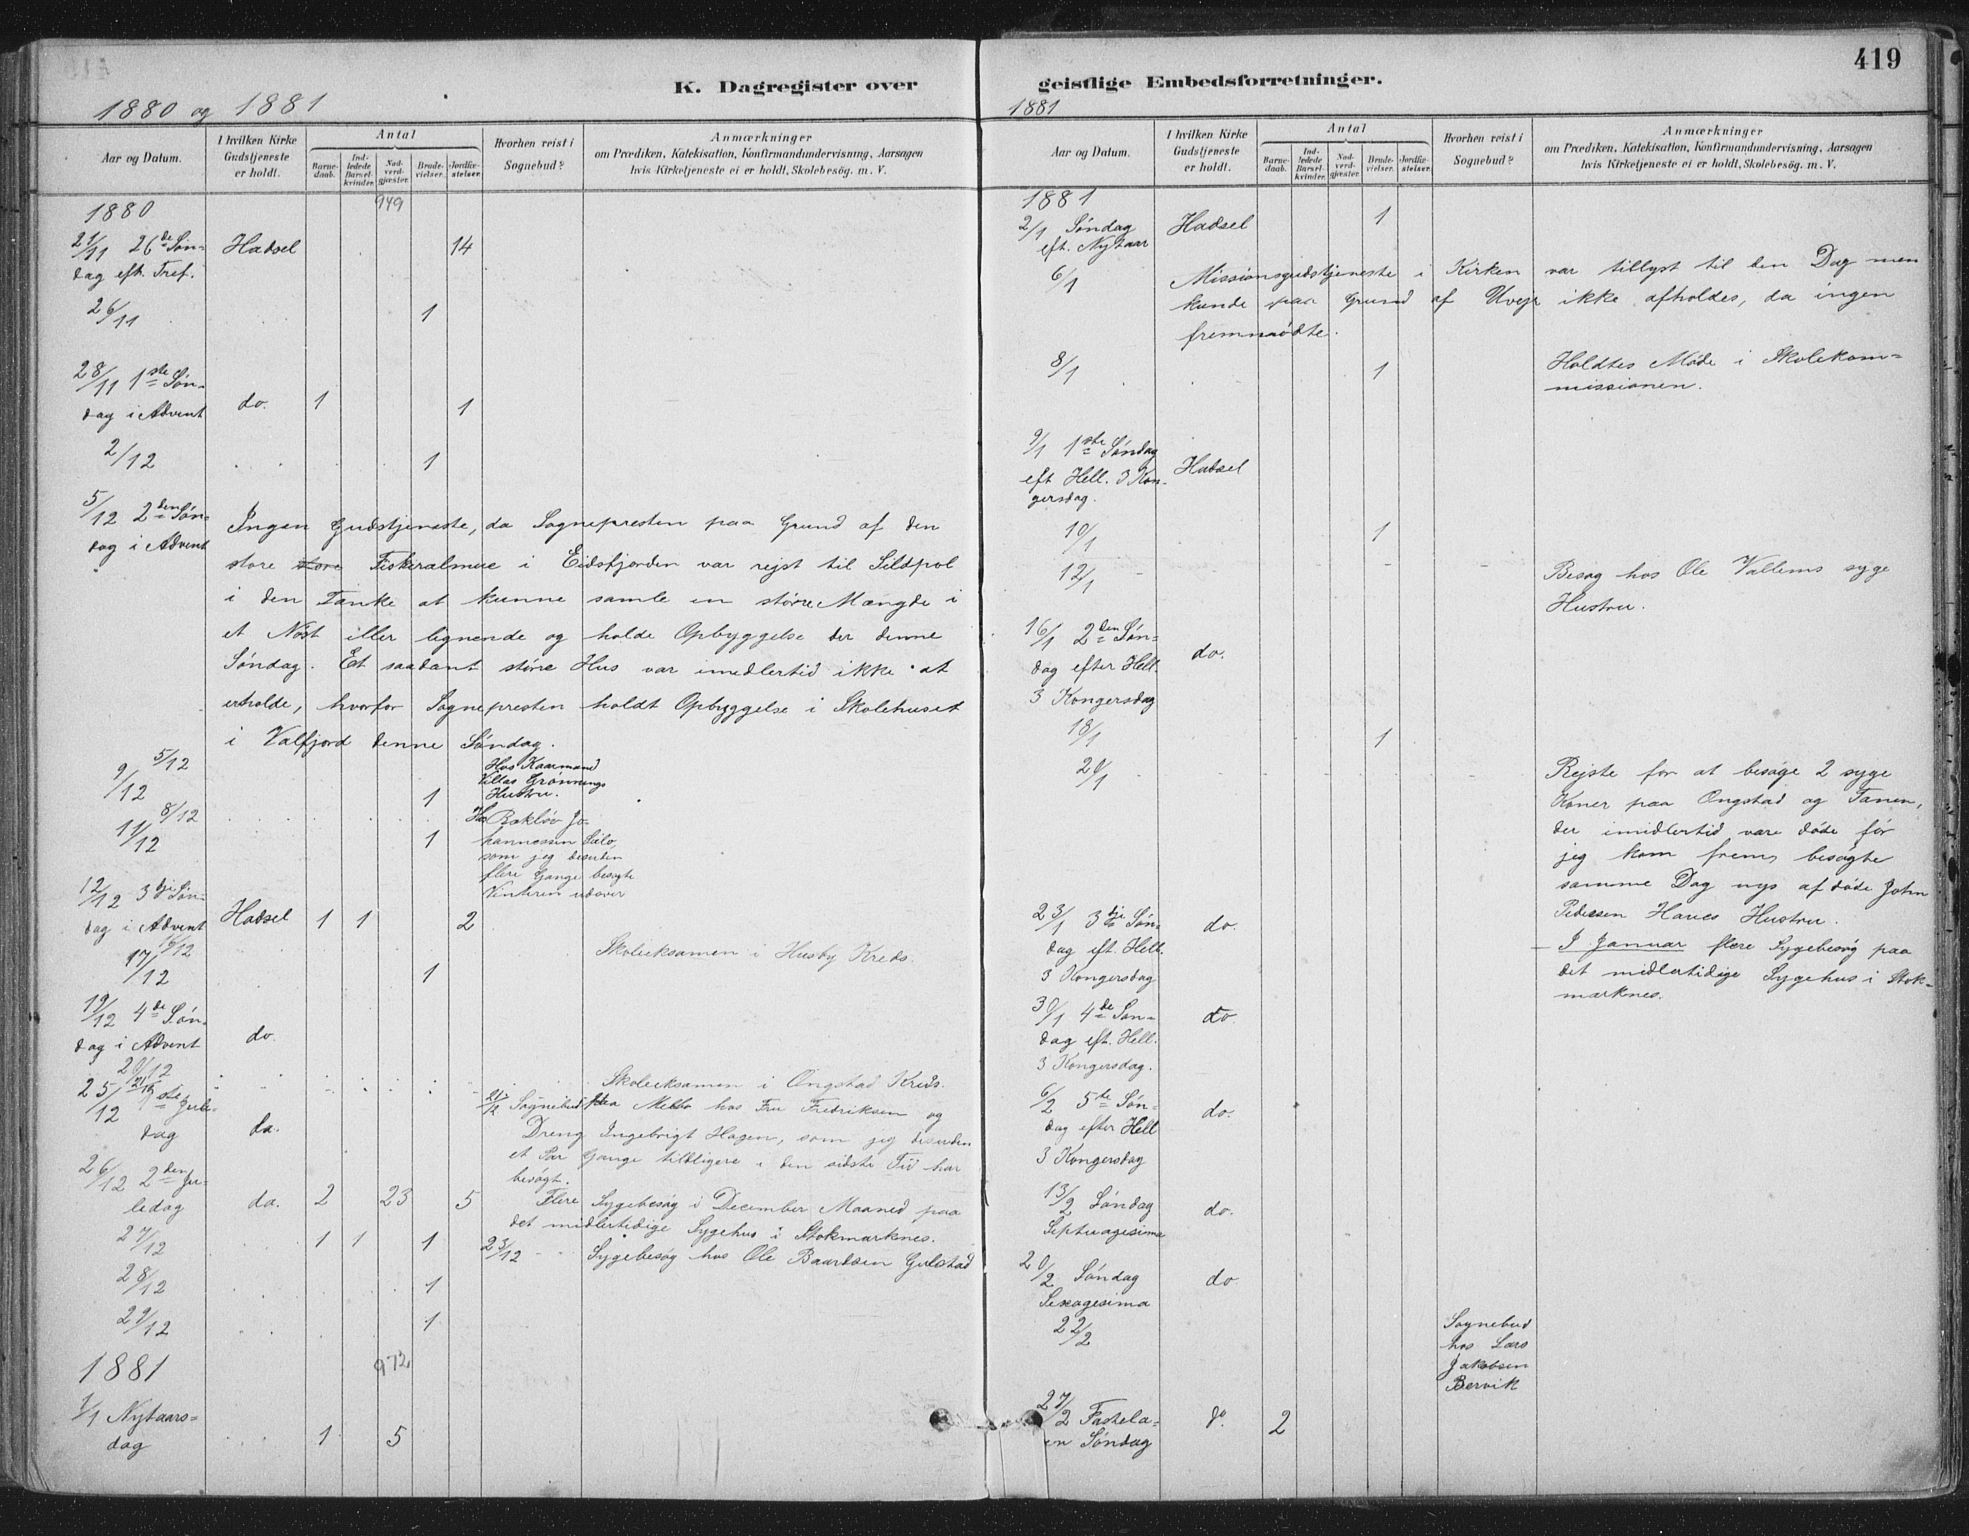 419
K. Dagregister over
1880 og 1881
Aar og Datum.
I hvilken Kirke
Gudstjeneste
er holdt.
Antal
Barne-
daab.
Ind-
ledede
Barsel-
kvinder.
Nad-
verd-
gjæster.
Brude-
vielser.
Jordfæ-
stelser.
Hvorhen reist i
Sognebud?
Anmærkninger
om Prædiken, Katekisation, Konfirmandundervisning, Aarsagen
hvis Kirketjeneste ei er holdt, Skolebesög. m. V.
1880
949
21/11 26de Søn-
dag eft. Tref. Hadsel 14
26/11 1
28/11 1ste Søn-
dag i Advent do. 1 1
2/12 1
5/12 2den Søn-
dag i Advent
Ingen Gudstjeneste, da Sognepresten paa Grund af den
store store Fiskeralmue i Eidsfjorden var rejst til Sildpol
i den Tanke at kunne samle en större Mængde i
et Nöst eller lignende og holde Opbyggelse der denne
Søndag. Et saadant större Hus var imedlertid ikke at
erholde, hvorfor Sognepresten holdt Opbyggelse i Skolehuset
i Valfjord denne Søndag.
5/12 Hos Kaarmand
Grønnings
9/12 1 Hustru.
8/12
11/12 1
hannessen
som jeg desuten
flere Gange besøgte
Vinteren udover
12/12 3dje Søn-
dag i Advent Hadsel 1 1 2
16/12 Skoleeksamen i Husby Kreds.
17/12 1
19/12 4de Søn-
dag i Advent do.
20/12
21/12 Skoleeksamen i Ongstad Kreds.
25/12 1ste Jule-
dag do.
Sognebud fra Melbo hos Fru Fredriksen og
Dreng Ingebrigt Hagen, som jeg desuden
et Par Gange tidligere i den sidste Tid har
besøgt.
26/12 2den Ju-
ledag do. 2 23 5
Flere Sygebesøg i December Maaned paa
det midlertidige Sygehus i Stokmarknes.
27/12 1 1 1
23/12 Sygebesøg hos Ole Baardsen Gulstad
28/12 1
29/12 1
1881
972
1/1 Nytaars-
dag 1 5
geistlige Embedsforretninger.
1881
Aar og Datum.
I hvilken Kirke
Gudstjeneste
er holdt.
Antal
Barne-
daab.
Ind-
ledede
Barsel-
kvinder.
Nad-
verd-
gjæster.
Brude-
vielser.
Jordfæ-
stelser.
Hvorhen reist i
Sognebud?
Anmærkninger
om Prædiken, Katekisation, Konfirmandundervisning, Aarsagen
hvis Kirketjeneste ei er holdt, Skolebesög. m. V.
1881
2/1 Søndag
eft. Nytaar Hadsel 1
6/1 Missionsgudstjeneste i Kirken var tillyst til den Dag men
kunde paa Grund af Uvejr ikke afholdes, da ingen
fremmødte.
8/1 1 Holdtes Møde i Skolekom-
missionen.
9/1 1ste Søndag
eft Hell. 3 Kon-
gersdag. Hadsel
10/1 1
12/1 Besøg hos Ole Vallems syge
Hustru.
16/1 2den Søn-
dag efter Hell.
3 Kongersdag do.
18/1 1
20/1 Rejste for at besøge 2 syge
Koner paa Ongstad og Tanen,
der imidlertid vare døde før
jeg kom frem, besøgte
samme Dag nys afdøde John
Pedersen Haues Hustru.
23/1 3dje Søn-
dag eft. Hell.
3 Kongersdag do.
– I Januar flere Sygebesøg paa
det midlertidige Sygehus i Stok-
marknes.
30/1 4de Søn-
dag eft. Hell.
3 Kongersdag. do.
6/2 5te Søn-
dag efter Hell
3 Kongersdag do.
13/2 Søndag
Septuagesima do.
20/2 Søndag
Sexagesima do
22/2 Sognebud
hos Lars
Jakobsen
Bervik
27/2 Fastela-
en Søndag do. 2